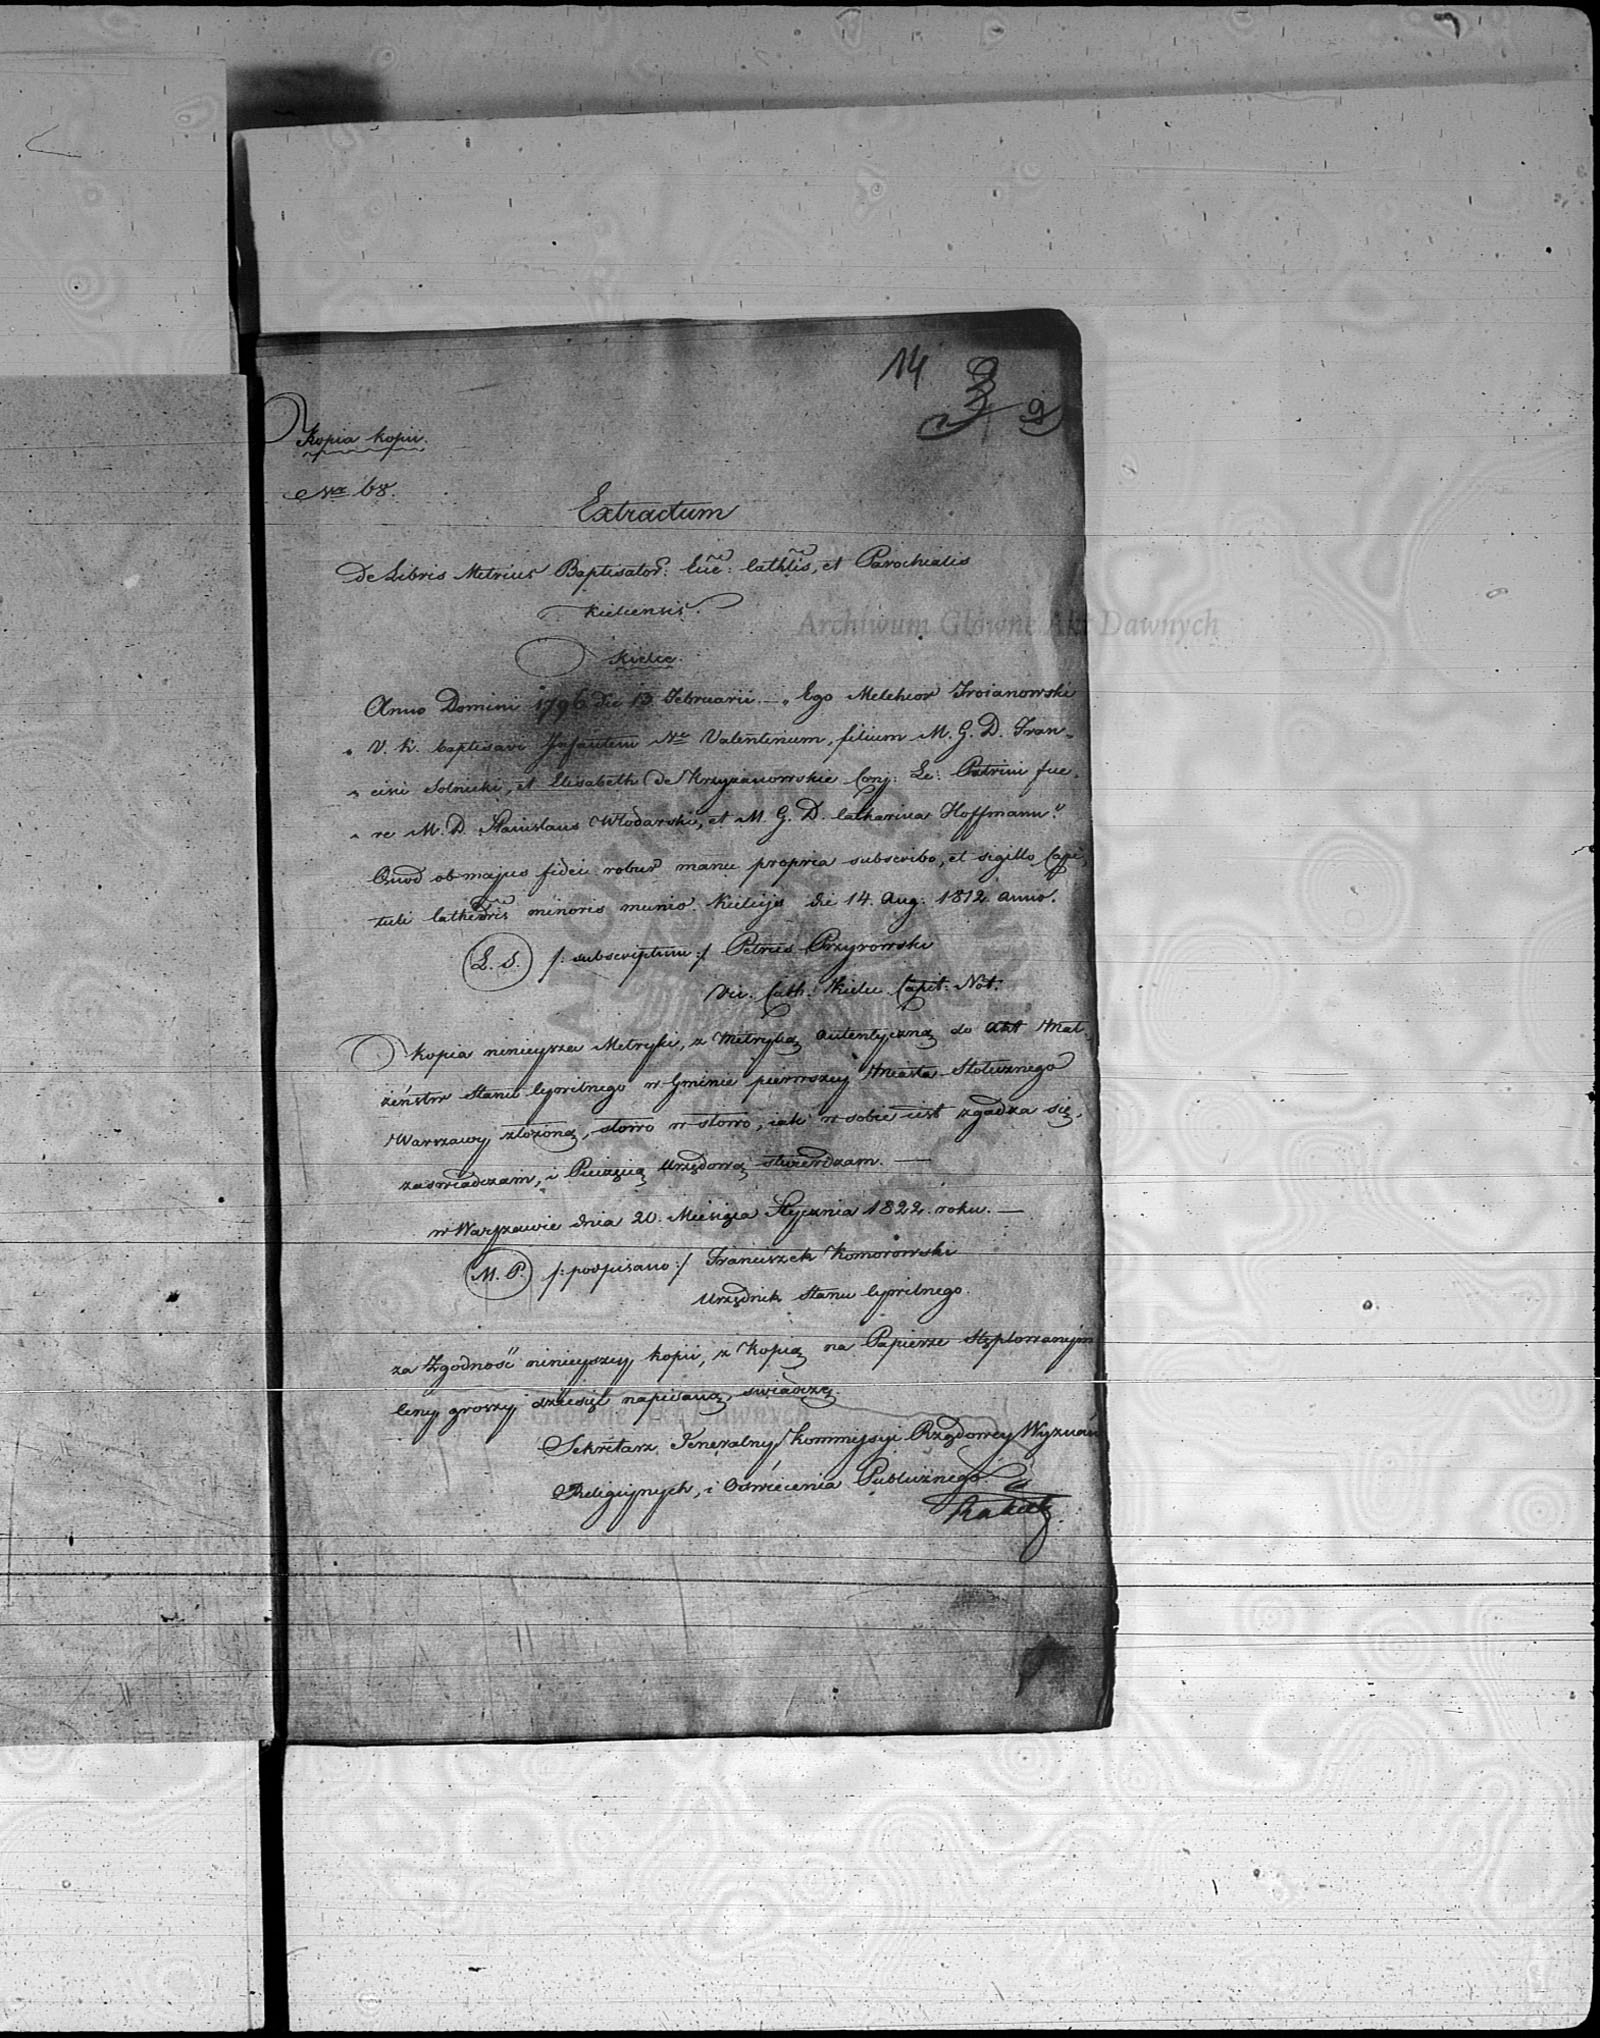 14
3 9
Kopia kopii.
Nro 68.
Extractum
De Libris Metrices Baptisator: Eccẽ: Cathlis, et Parochialis
Kielcensis.
Kielce.
Anno Domini 1796 die 13 Februarii. — „ Ego Melchior Troianowski
„ V. K. baptisavi Infantem Nẽ Valentinum, filium M. G. D. Fran„
„ cisci Solnicki, et Elisabeth de Krzyżanowskie Conj: Le: Patrini fue„
„ re M. D. Stanislaus Włodarski, et M. G. D. Catharina Hoffmann."
Quod ob majus fidei robur manu propria subscribo, et sigillo Capi„
tuli Cathedris minoris munio. Kielcijs die 14. Aug. 1812. anno.
L. S. /: subscriptum :/ Petrus Przyrowski
Vic. Cath: Kielc Capit: Not:
Kopia ninieysza Metryki, z Metryką autentyczną do Akt Mał„
żeństw Stanu Cywilnego w Gminie pierwszey Miasta Stołecznego
Warszawy złożoną, słowo w słowo, iak w sobie iest zgadza się,
zaświadczam, i Pieczęcią Urzędową stwierdzam. —
w Warszawie dnia 20. Miesiąca Stycznia 1822. roku. —
M. P. /: podpisano :/ Franciszek Komorowski
Urzędnik Stanu Cywilnego.
za Zgodność ninieyszey kopii, z Kopią na Papierze Stęplowanym
ceny groszy dziesięć napisaną, świadczę.
Sekretarz Jeneralny Kommissyi Rządowey Wyznań
Religiynych, i Oświecenia Publicznego.
Archiwum Główne Akt Dawnych
Archiwum Główne Akt Dawnych